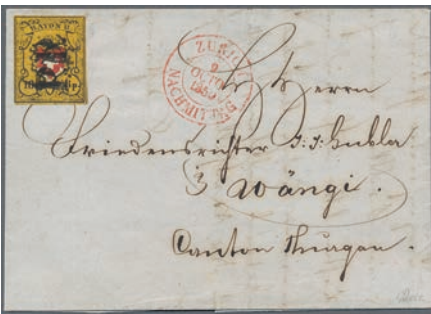 RAYON II.
10 Rp.
ZÜRICH
9
OCTOB
1850
NACHMITTAG
Herrn
Friedensrichter J: J: Hubla
Wängi.
Canton Thurgau.